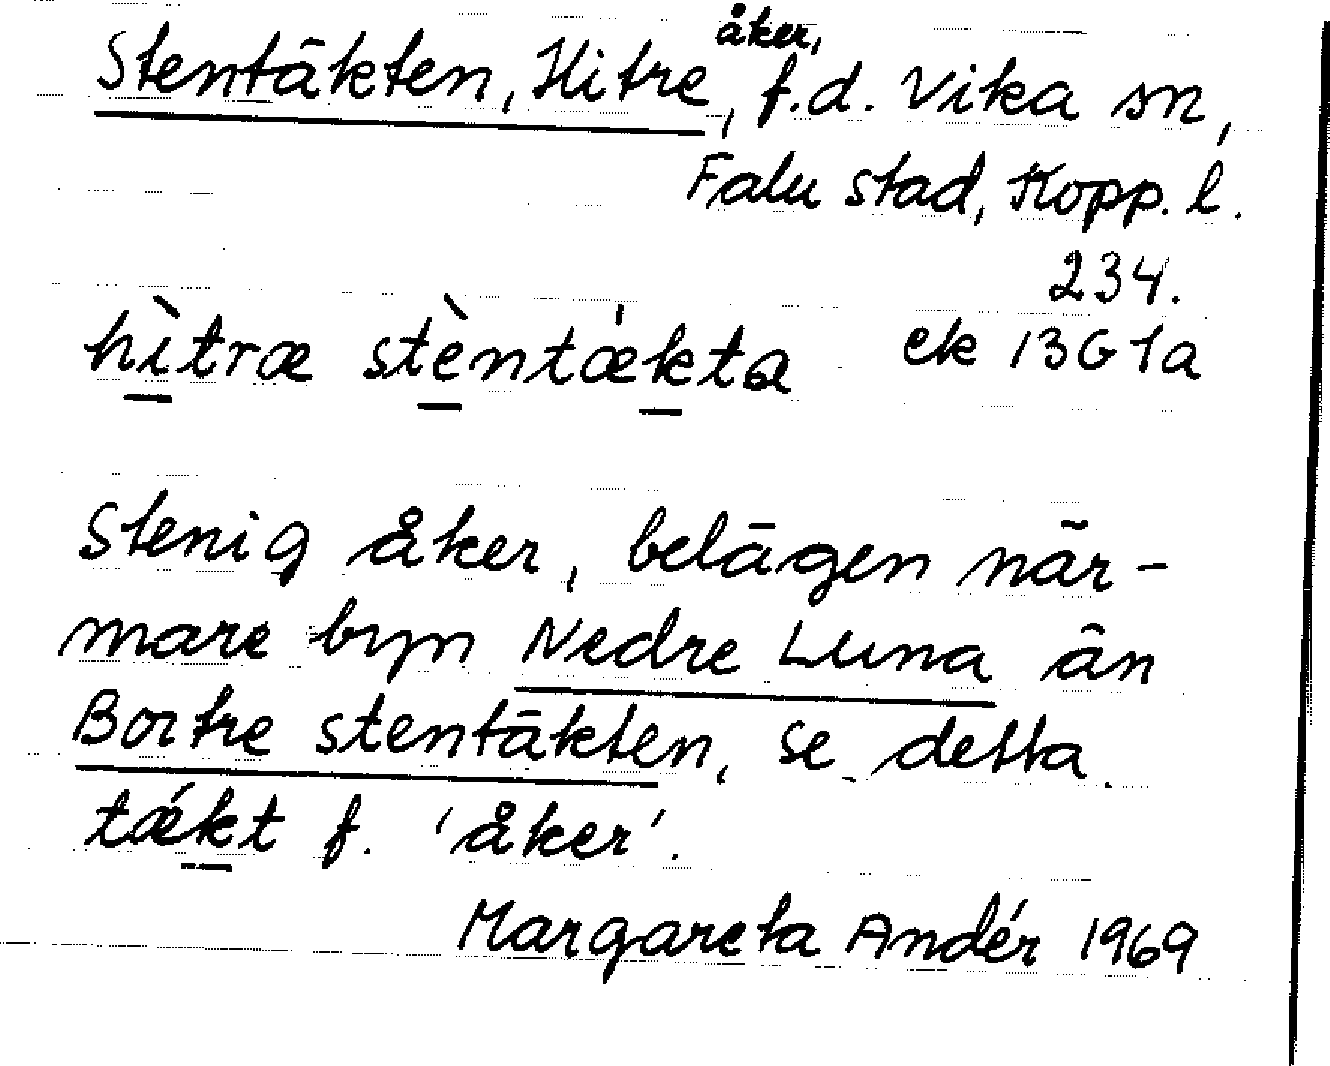 Stentäkten, Hitre, åker, f.d. Vika sn,
Falu stad, Kopp. l.
234.
hìtræ stèntǽkta ek 13G1a
Stenig åker, belägen när-
mare byn Nedre Luna än
Bortre stentäkten, se detta.
tǽkt f. 'åker'.
Margareta Andér 1969